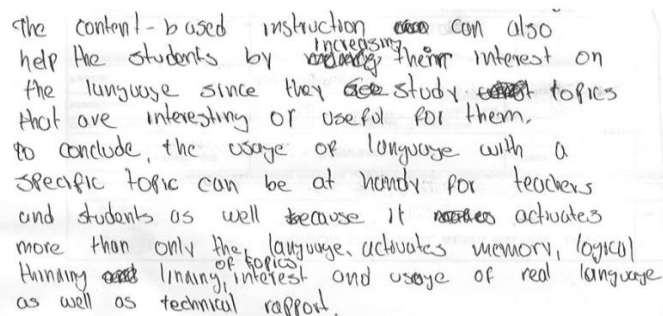 The content-based instruction can also
help the students by increasing their interest on
the language since they study topics
that are interesting or useful for them.
to conclude, the usage of language with a
specific topic can be at handy for teachers
and students as well because it activates
more than only the language, activates memory, logical
thinking linining, interest of topics and usage of real language
as well as technical rapport.